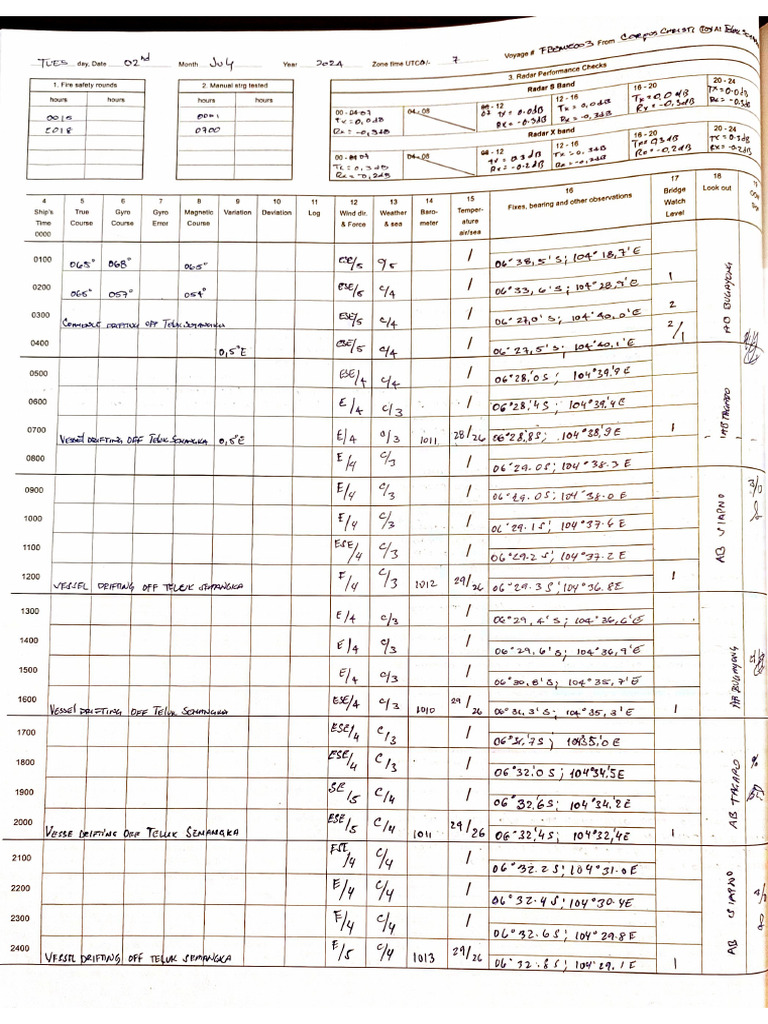 TUES day, Date 02nd Month July Year 2024 Zone time UTC 7 Voyage # From Corpus Christi
1. Fire safety rounds
hours hours
0015
2. Manual strg tested
hours hours
0001
0700
3. Radar Performance Checks
Radar S Band
04 - 08
12 - 16
16 - 20
20 - 24
Tx = 0,0dB
Rx = -0,3dB
Tx = 0.0dB
Rx = -0.3dB
Tx = 0,0dB
Rx = -0,3dB
Tx = 0,0dB
Rx = -0,3dB
Tx = 0.0dB
Rx = -0.3dB
Radar X band
04 - 08
08 - 12
12 - 16
16 - 20
20 - 24
Tx = 0,3dB
Rx = -0,2dB
Tx = 0.3dB
Rx = -0.2dB
Tx = 0.3dB
Rx = -0.2dB
Tx = 0.3dB
Rx = -0.2dB
Tx = 0.3dB
Rx = -0.2dB
4 Ship's Time 0000
5 True Course
6 Gyro Course
7 Gyro Error
8 Magnetic Course
9 Variation
10 Deviation
11 Log
12 Wind dir. & Force
13 Weather & sea
14 Baro- meter
15 Temper- ature air/sea
16 Fixes, bearing and other observations
17 Bridge Watch Level
18 Look out
0100 065° 068° 065° ESE/5 c/5 / 06°38,5'S; 104°18,7'E 1
0200 065° 057° 054° ESE/5 c/4 / 06°33,6'S; 104°28,9'E
0300 Commence drifting off Teluk Semangka ESE/5 c/4 / 06°27,0'S; 104°40,0'E 2
0400 0,5°E ESE/5 c/4 / 06°27,5'S; 104°40,1'E 2/1
AB BUGAYONG
0500 ESE/4 c/4 / 06°28.0S; 104°39.9E
0600 E/4 c/3 / 06°28.4S; 104°39,4E
0700 Vessel drifting off Teluk Semangka 0,5°E E/4 c/3 1011 28/26 06°28,8S; 104°38,9E 1
0800 E/4 c/3 / 06°29.0S; 104°38.3E
AB TAGADO
0900 E/4 c/3 / 06°29.0S; 104°38.0E
1000 E/4 c/3 / 06°29.1S; 104°37.6E
1100 ESE/4 c/3 / 06°29.2S; 104°37.2E
1200 VESSEL DRIFTING OFF TELUK SEMANGKA E/4 c/3 1012 29/26 06°29.3S; 104°36.8E 1
AB SIAPNO
1300 E/4 c/3 / 06°29,4'S; 104°36,6'E
1400 E/4 c/3 / 06°29,6'S; 104°36,9'E
1500 E/4 c/3 / 06°30,8'S; 104°35,7'E
1600 Vessel drifting off Teluk Semangka ESE/4 c/3 1010 29/26 06°31,3'S; 104°35,3'E 1
AB BUGAYONG
1700 ESE/4 C/3 / 06°31,7S; 104°35,0E
1800 ESE/4 C/3 / 06°32.0S; 104°34.5E
1900 SE/5 C/4 / 06°32,6S; 104°34.2E
2000 VESSE DRIFTING OFF TELUK SEMANGKA ESE/5 C/4 1011 29/26 06°32,4S; 104°32,4E 1
AB TAGADO
2100 ESE/4 C/4 / 06°32.2S; 104°31.0E
2200 E/4 C/4 / 06°32.4S; 104°30.4E
2300 E/4 C/4 / 06°32.6S; 104°29.8E
2400 VESSEL DRIFTING OFF TELUK SEMANGKA E/5 C/4 1013 29/26 06°32.8S; 104°29.1E 1
AB SIAPNO